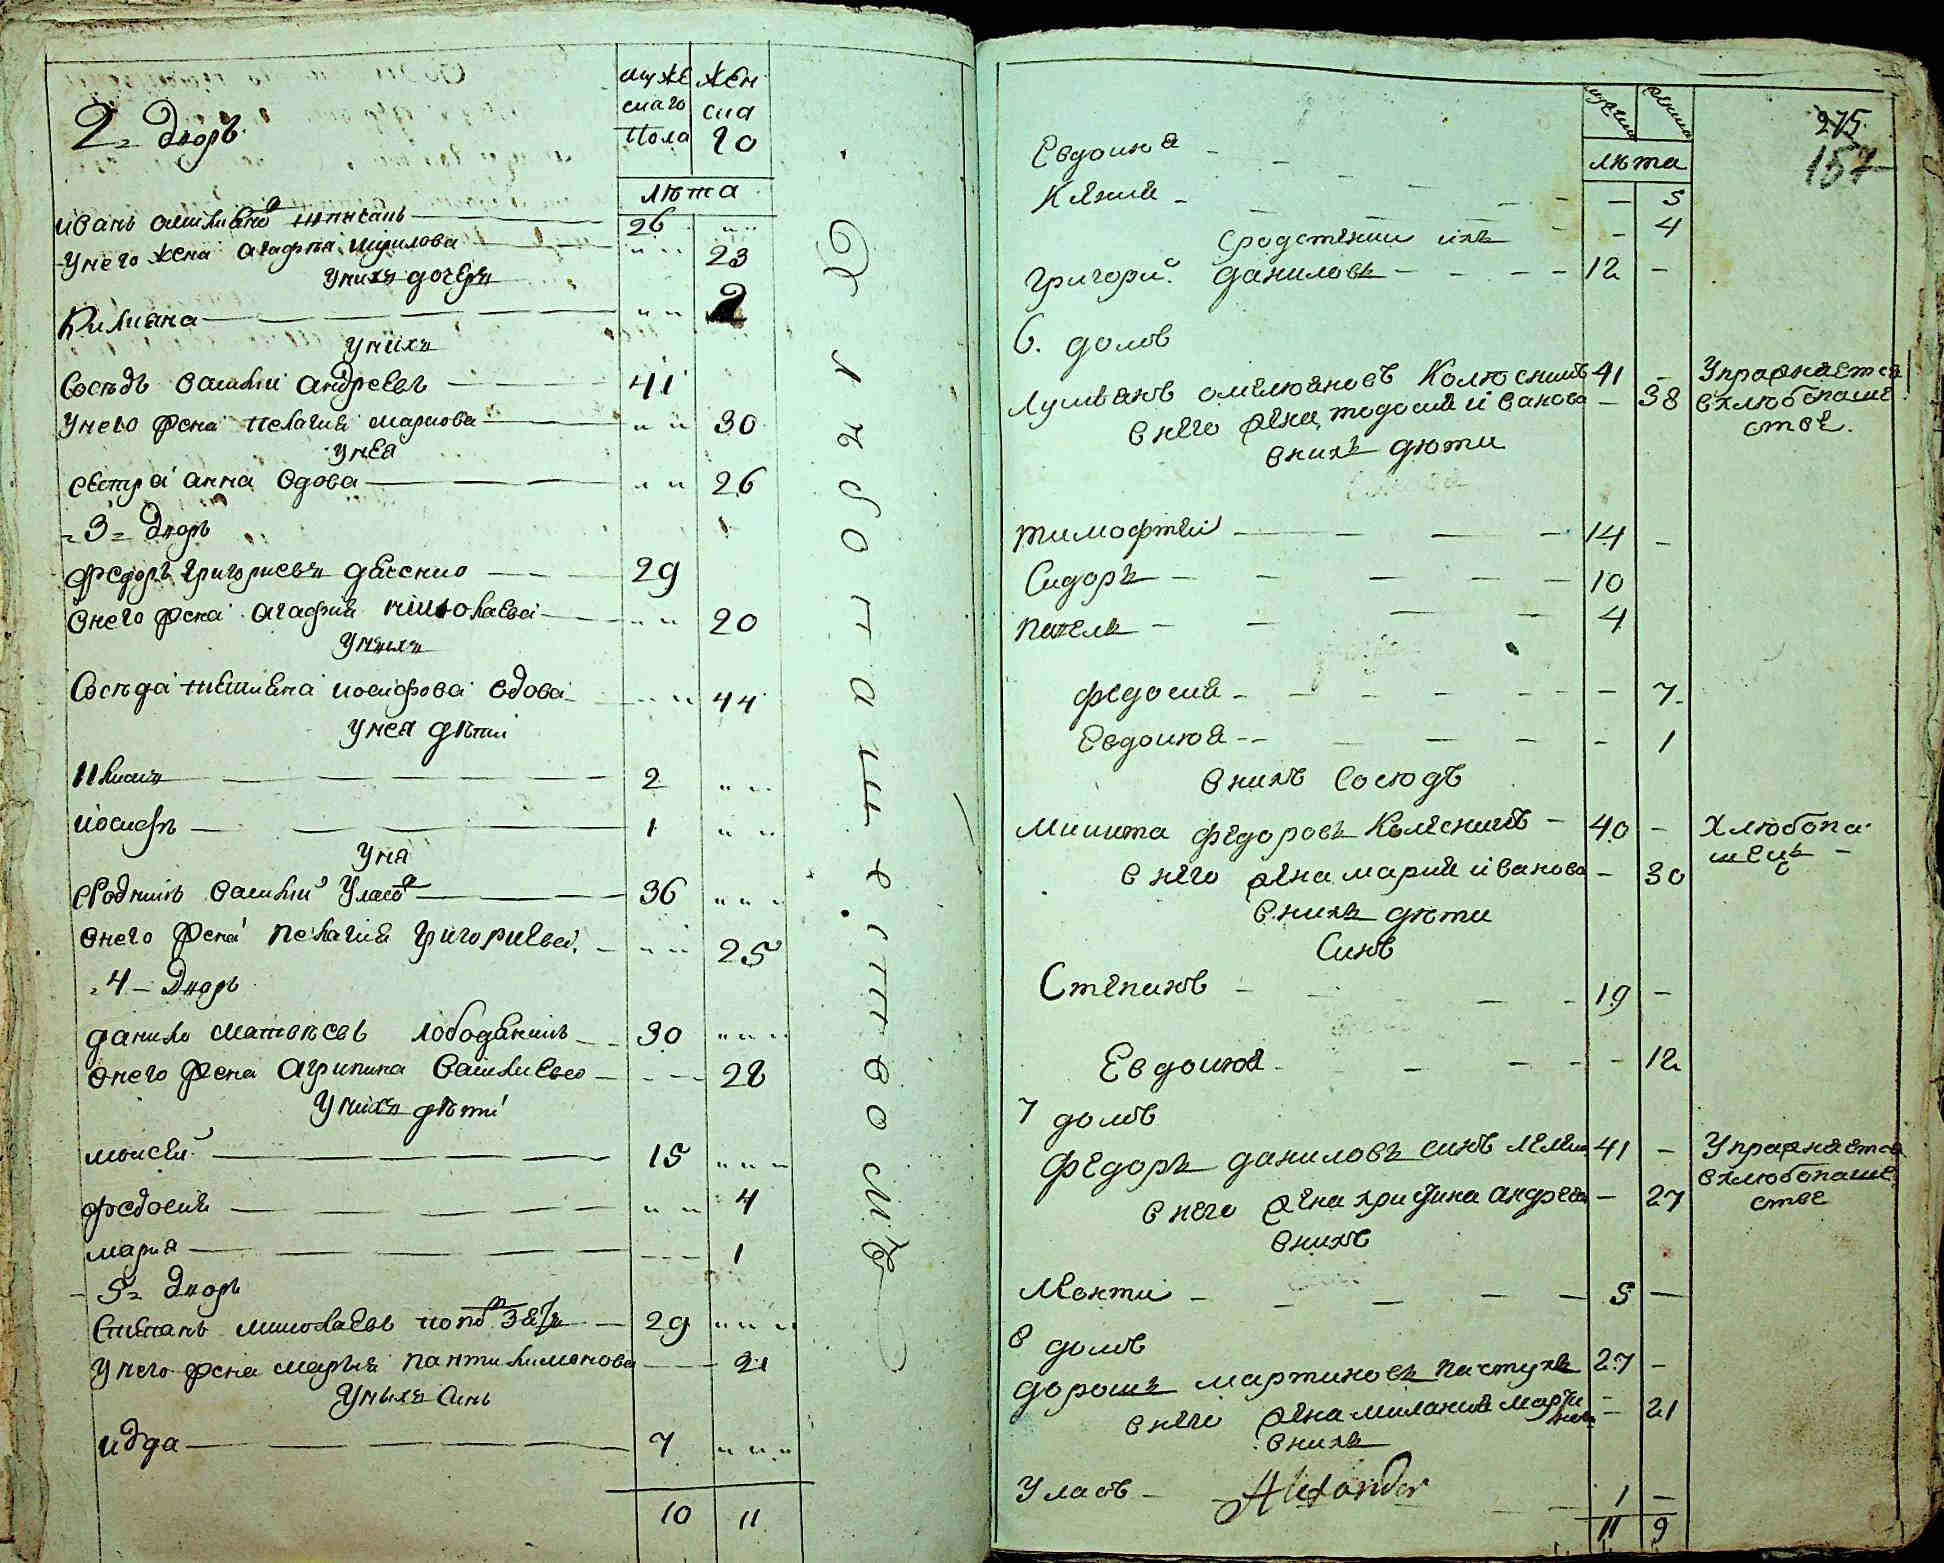 2 = Дворъ
муже
скаго
пола
жен
ска
го
лѣта
26
У него жена агафия кирилова 23
У нихъ дочеръ
Килияна 2
У нихъ
Сосѣдъ василий андреевъ 41
У него жена пелагия маркова 30
У нея
сестра анна вдова 26
= 3 = Дворъ
Федоръ григориевъ 29
В него жена агафия николаева 20
У нихъ
Сосѣда иосифова вдова 44
У нея дѣти
2
иосифъ 1
У ня
сродникъ василий Уласо 36
В него жена пелагия григориева 25
= 4 = Дворъ
данило матвѣевъ лободенко 30
В него жена агрипина василиева 28
У нихъ дѣти
моисей 15
федосия 4
мария 1
= 5 = Дворъ
Степанъ николаевъ 29
У него жена мария пантилимонова 21
У ныхъ Синъ
иуда 7
10 11
Хлѣбопашество мъ
275
157
лѣта
Евдокия - 5
Ксения - 4
сродственик ихъ
Григорий даниловъ 12 -
6. домъ
Лукиянъ омелянов Колюсникъ 41 - Упражняется
в него жена тодосия иванова - 38 в хлюбопаше
в нихъ дюти стве.
тимофтей 14 -
Сидоръ 10
павелъ 4
федосия - 7
Евдокия - 1
в нихъ Сосюдъ
Микита федоровъ Колесникъ 40 - Хлюбопа
шецъ
в него жена мария иванова - 30
в нихъ дюти
Синъ
Степанъ 19 -
Евдокия - 12
7 домъ
федоръ даниловъ синъ 41 - Упражняется
в хлюбопаше
в него жена христина андреева - 27 стве
в нихъ
Леонти 5 -
8 домъ
дорошъ мартиновъ пастухъ 27 -
в него жена милания марти нова - 21
в нихъ
Уласъ 1 -
Alexander
11 9